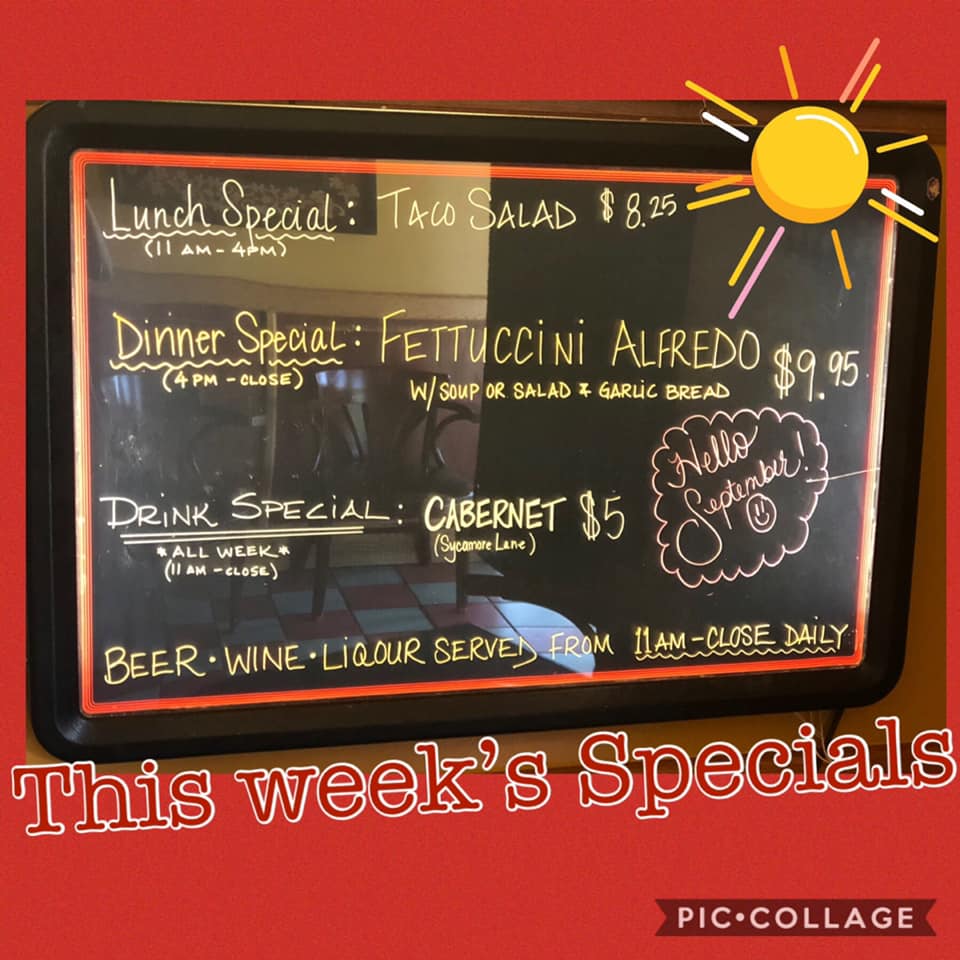 Lunch Special: TACO SALAD $8.25
(11 AM - 4PM)
Dinner Special: FETTUCCINI ALFREDO $9.95
(4 PM - CLOSE)
W/ SOUP OR SALAD & GARLIC BREAD
Hello
September!
DRINK SPECIAL: CABERNET $5
(Sycamore Lane)
*ALL WEEK*
(11 AM - CLOSE)
BEER • WINE • LIQOUR SERVED FROM 11AM - CLOSE DAILY
This week's Specials
PIC•COLLAGE